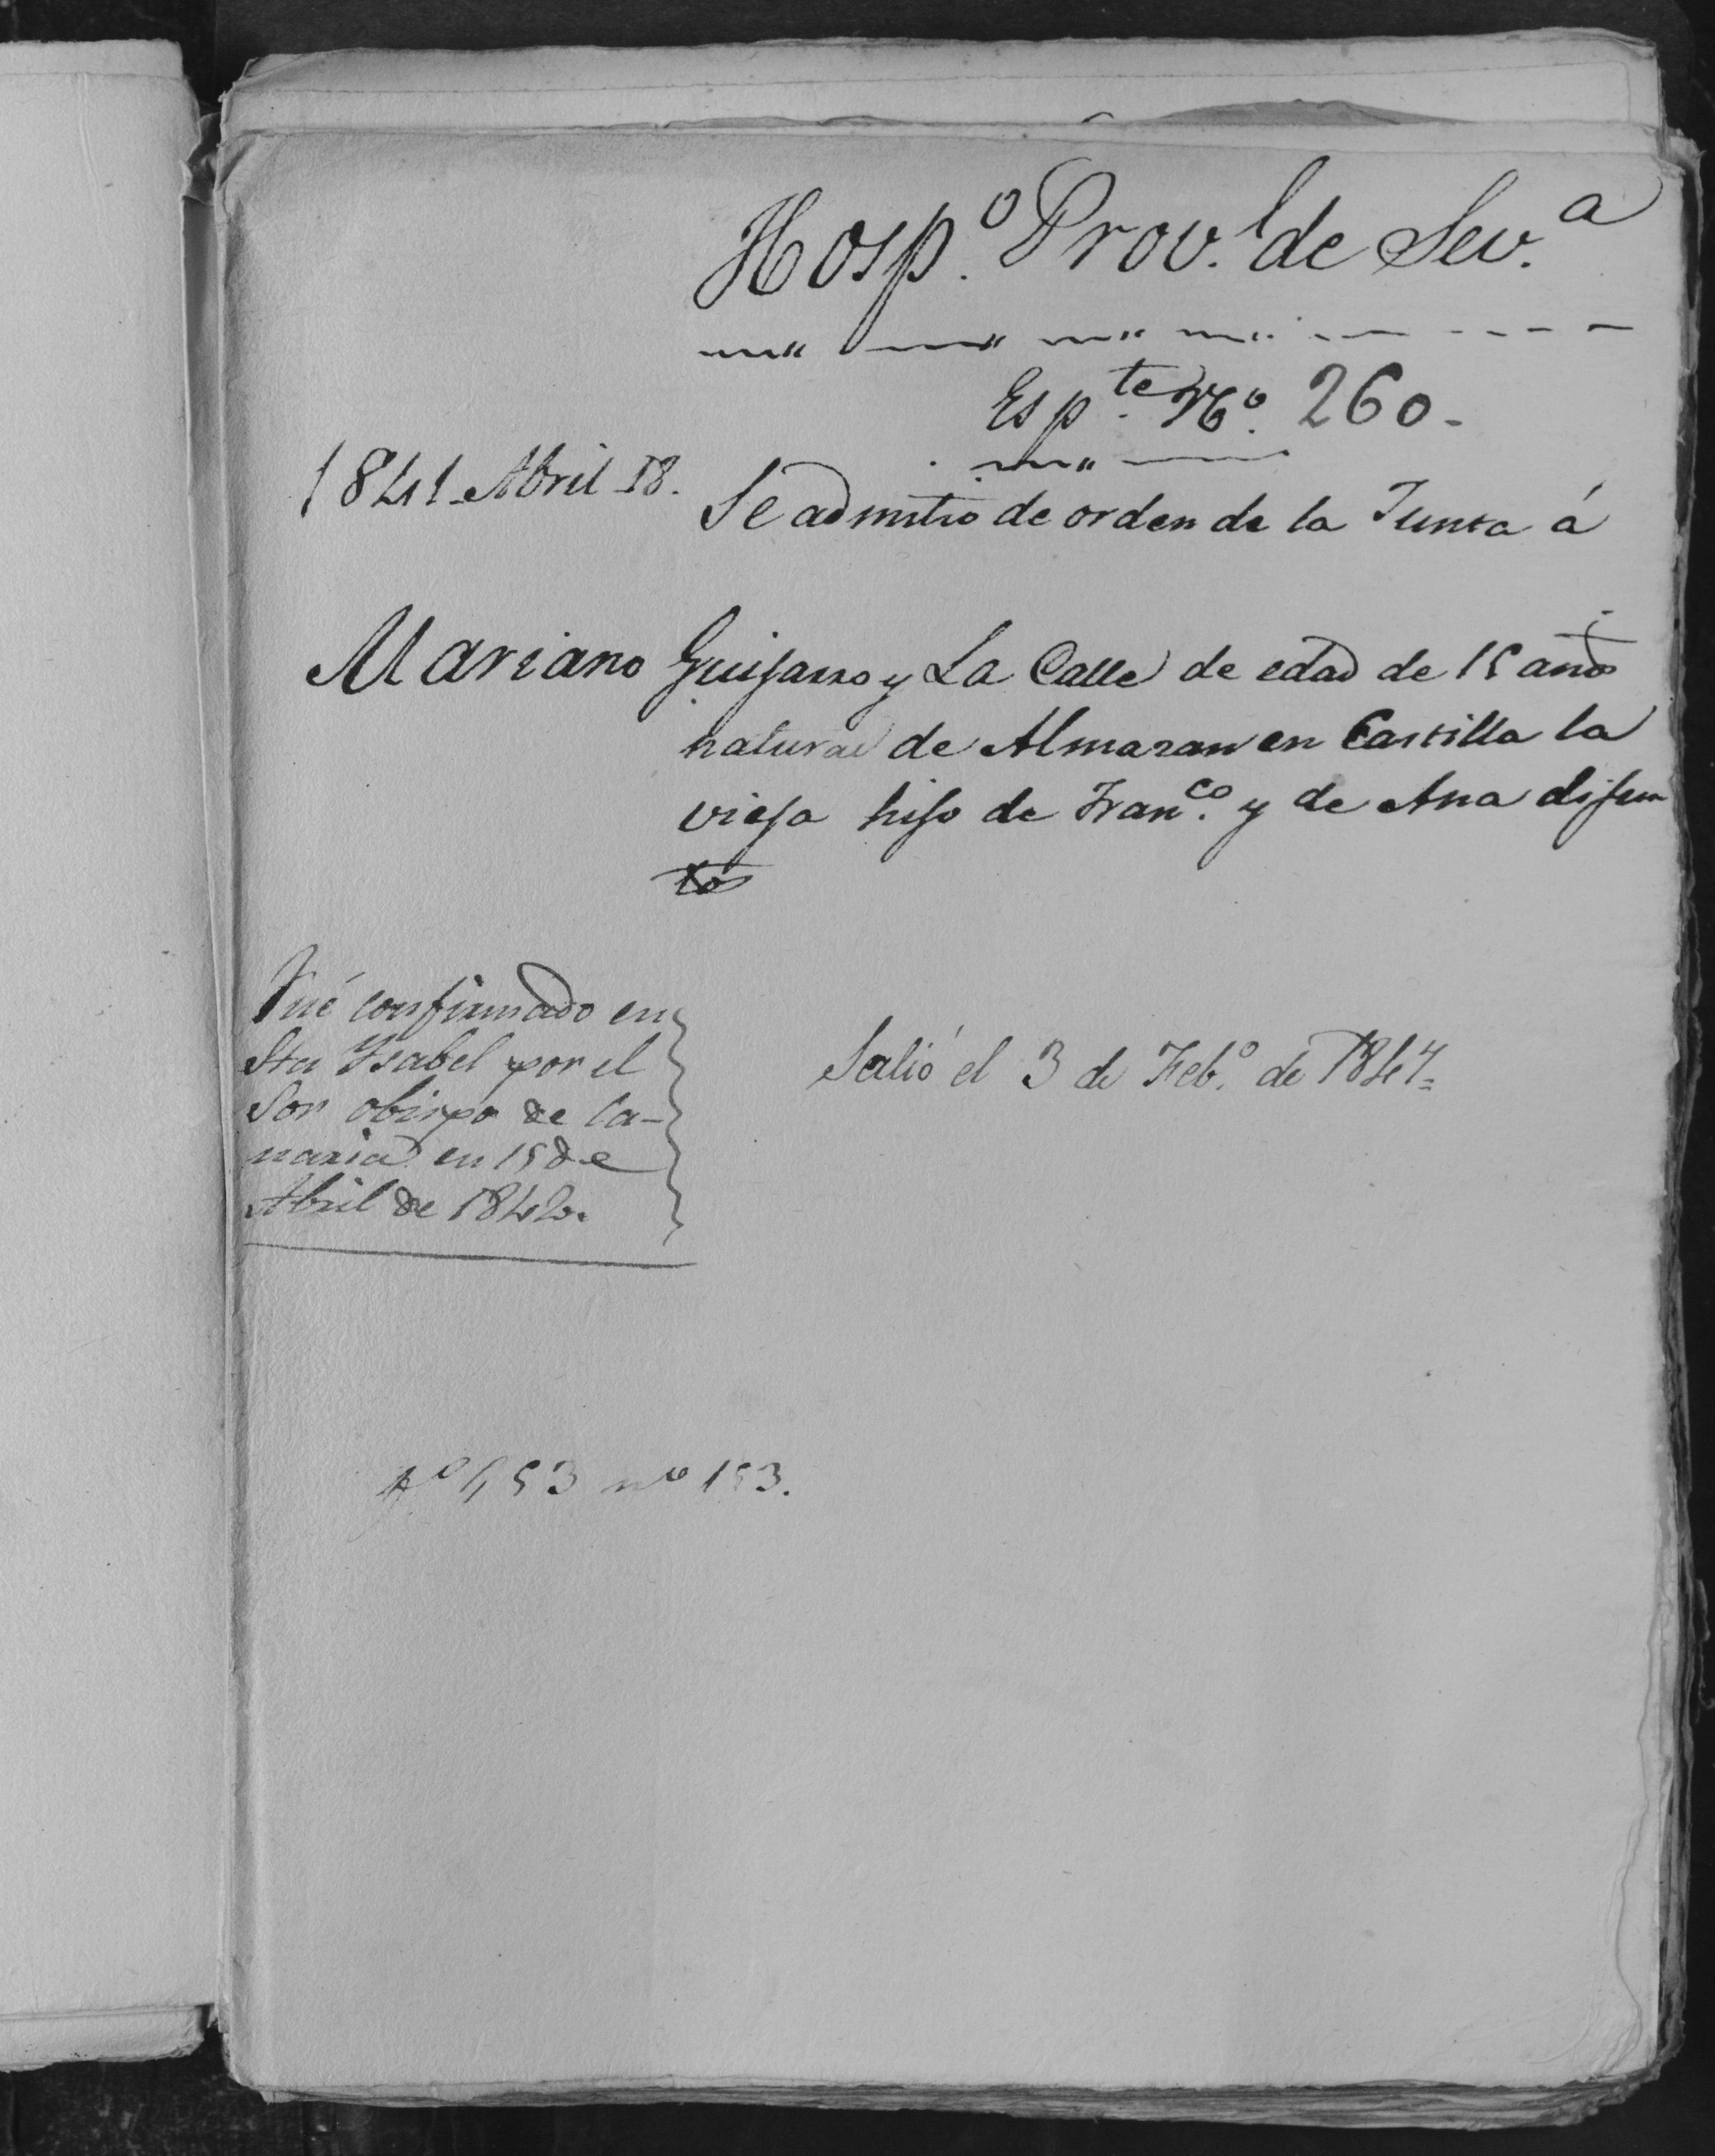 Hosp.º Prov.l de Sev.a
Esp.te Nº. 260.
1841 Abril 18.
Se admitio de orden de la Junta á
Mariano Guijarro y La Calle de edad de 15 años
natural de Almazan en Castilla la
vieja hijo de Fran.co y de Ana difun
tos
Fué confirmado en
Sta Ysabel por el
Sor obispo de Ca-
naria en 15 de
Abril de 1842.
Salió el 3 de Feb.º de 1847.
fº 153 nº 153.